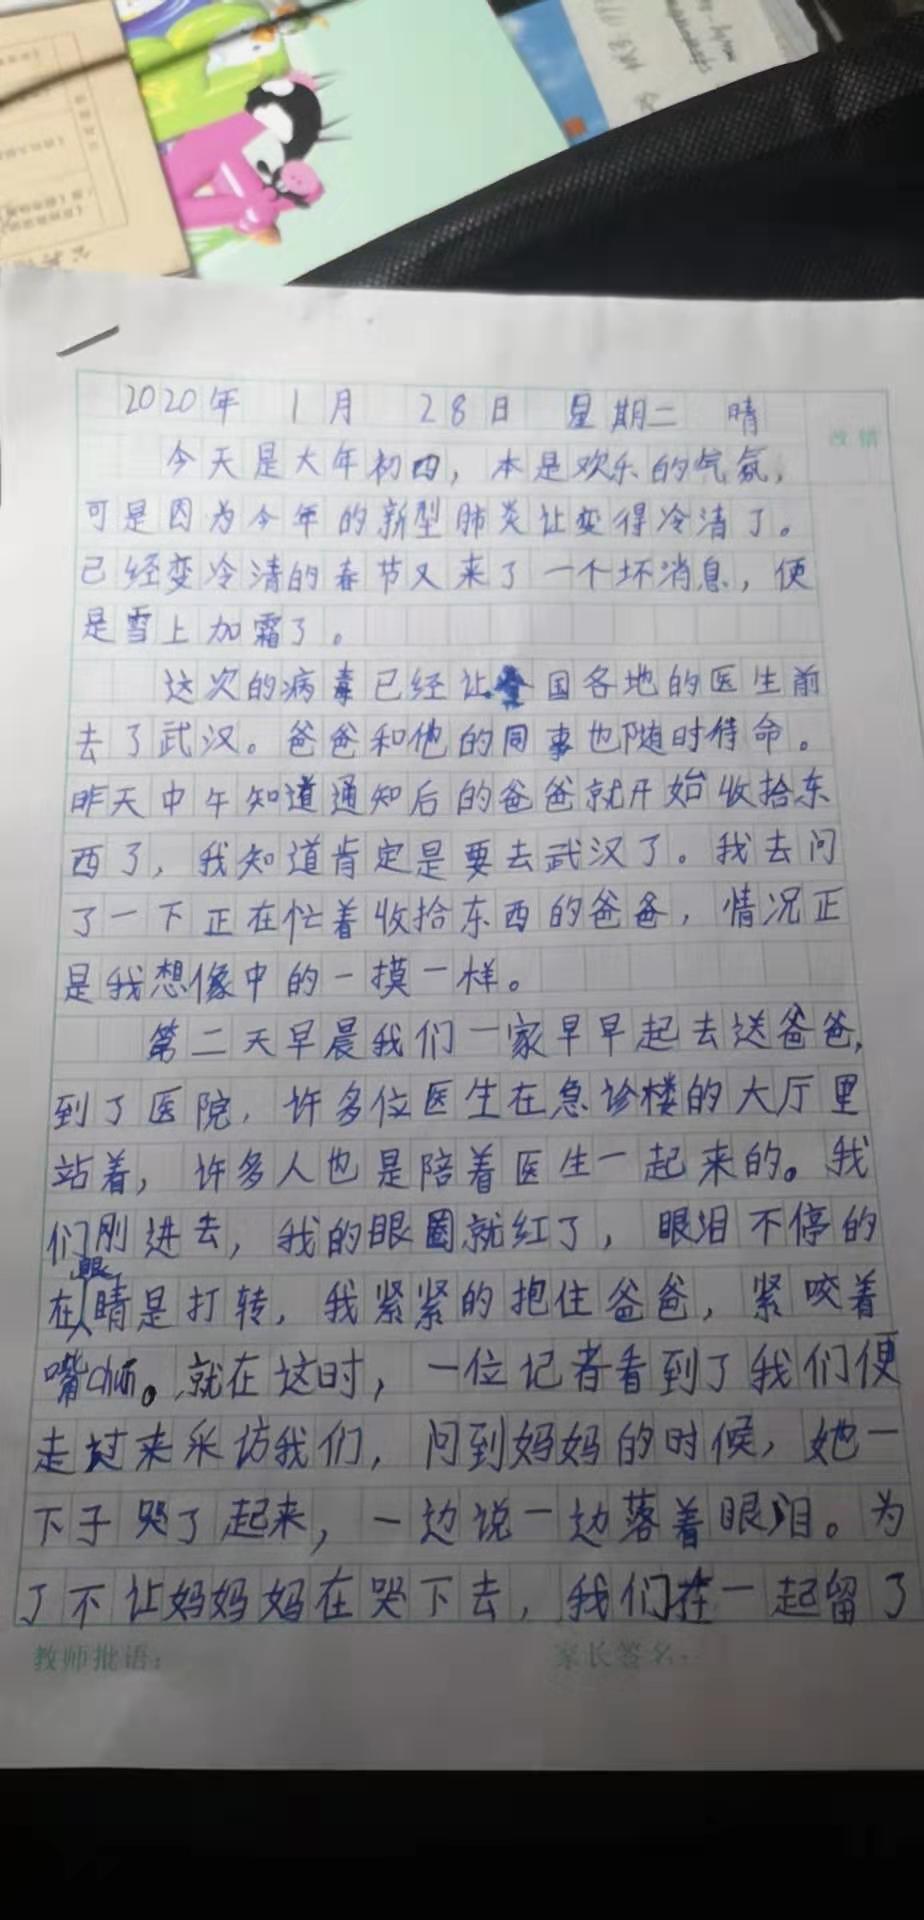 2020年 1月 28日 星期二 晴
改错
今天是大年初四，本是欢乐的气氛，
可是因为今年的新型肺炎让变得冷清了。
已经变冷清的春节又来了一个坏消息，便
是雪上加霜了。
这次的病毒已经让全国各地的医生前
去了武汉。爸爸和他的同事也随时待命。
昨天中午知道通知后的爸爸就开始收拾东
西了，我知道肯定是要去武汉了。我去问
了一下正在忙着收拾东西的爸爸，情况正
是我想像中的一摸一样。
第二天早晨我们一家早早起去送爸爸，
到了医院，许多位医生在急诊楼的大厅里
站着，许多人也是陪着医生一起来的。我
们刚进去，我的眼圈就红了，眼泪不停的
在眼睛是打转，我紧紧的抱住爸爸，紧咬着
嘴chún。就在这时，一位记者看到了我们便
走过来采访我们，问到妈妈的时候，她一
下子哭了起来，一边说一边落着眼泪。为
了不让妈妈妈在哭下去，我们在一起留了
教师批语：
家长签名：